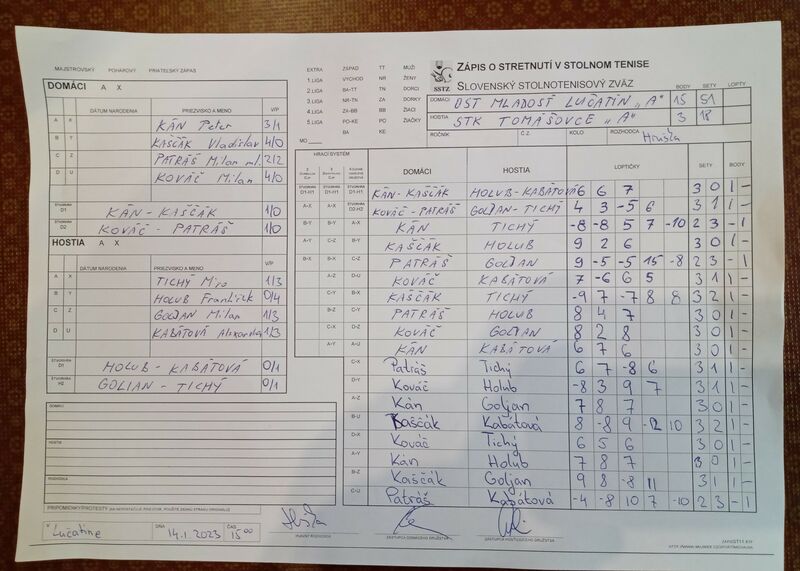 MAJSTROVSKÝ POHÁROVÝ PRIATEĽSKÝ ZÁPAS
DOMÁCI A X
DÁTUM NARODENIA PRIEZVISKO A MENO V/P
A X KÁN Peter 3/1
B Y KAŠČÁK Vladislav 4/0
C Z PATRÁŠ Milan ml. 2/2
D U KOVÁČ Milan 4/0
ŠTVORHRA D1 KÁN - KAŠČÁK 1/0
ŠTVORHRA D2 KOVÁČ - PATRÁŠ 1/0
HOSTIA A X
DÁTUM NARODENIA PRIEZVISKO A MENO V/P
A X TICHÝ Miro 1/3
B Y HOLUB František 0/4
C Z GOLJAN Milan 1/3
D U KABÁTOVÁ Alexandra 1/3
ŠTVORHRA D1 HOLUB - KABÁTOVÁ 0/1
ŠTVORHRA H2 GOLIAN - TICHÝ 0/1
DOMÁCI
HOSTIA
ROZHODCA
PRIPOMIENKY/PROTESTY
V Lúčatíne DŇA 14.1.2023 ČAS 15 00
HLAVNÝ ROZHODCA
ZÁSTUPCA DOMÁCEHO DRUŽSTVA
ZÁSTUPCA HOSŤUJÚCEHO DRUŽSTVA
EXTRA ZÁPAD TT MUŽI
1.LIGA VÝCHOD NR ŽENY
2.LIGA BA-TT TN DORCI
3.LIGA NR-TN ZA DORKY
4.LIGA ZA-BB BB ŽIACI
5.LIGA PO-KE PO ŽIAČKY
BA KE
MO
SSTZ
ZÁPIS O STRETNUTÍ V STOLNOM TENISE
SLOVENSKÝ STOLNOTENISOVÝ ZVÄZ
BODY SETY LOPTY
DOMÁCI OST MLADOSŤ LUČATÍN "A" 15 51
HOSTIA STK TOMÁŠOVCE "A" 3 18
ROČNÍK Č.Z. KOLO ROZHODCA Hruška
HRACÍ SYSTÉM DOMÁCI HOSTIA LOPTIČKY SETY BODY
ŠTVORHRA D1-H1 KÁN-KAŠČÁK HOLUB-KABÁTOVÁ 6 6 7 3 0 1 -
A-X ŠTVORHRA D2-H2 KOVÁČ-PATRÁŠ GOLJAN-TICHÝ 4 3 -5 6 3 1 1 -
B-Y A-X KÁN TICHÝ -8 -8 5 7 -10 2 3 - 1
A-Y C-Z B-Y KAŠČÁK HOLUB 9 2 6 3 0 1 -
B-X C-Z PATRÁŠ GOLJAN 9 -5 -5 15 -8 2 3 - 1
A-Z D-U KOVÁČ KABÁTOVÁ 7 -6 6 5 3 1 1 -
C-Y B-X KAŠČÁK TICHÝ -9 7 -7 8 8 3 2 1 -
B-Z C-Y PATRÁŠ HOLUB 8 4 7 3 0 1 -
C-X D-Z KOVÁČ GOLJAN 8 2 8 3 0 1 -
A-Y A-U KÁN KABÁTOVÁ 6 7 6 3 0 1 -
C-X Patráš Tichý 6 7 -8 6 3 1 1 -
D-Y Kováč Holub -8 3 9 7 3 1 1 -
A-Z Kán Goljan 7 8 7 3 0 1 -
B-U Kaščák Kabátová 8 -8 9 -12 10 3 2 1 -
D-X Kováč Tichý 6 5 6 3 0 1 -
A-Y Kán Holub 7 8 7 3 0 1 -
B-Z Kaščák Goljan 9 8 -8 11 3 1 1 -
C-U Patráš Kabátová -4 -8 10 7 -10 2 3 - 1